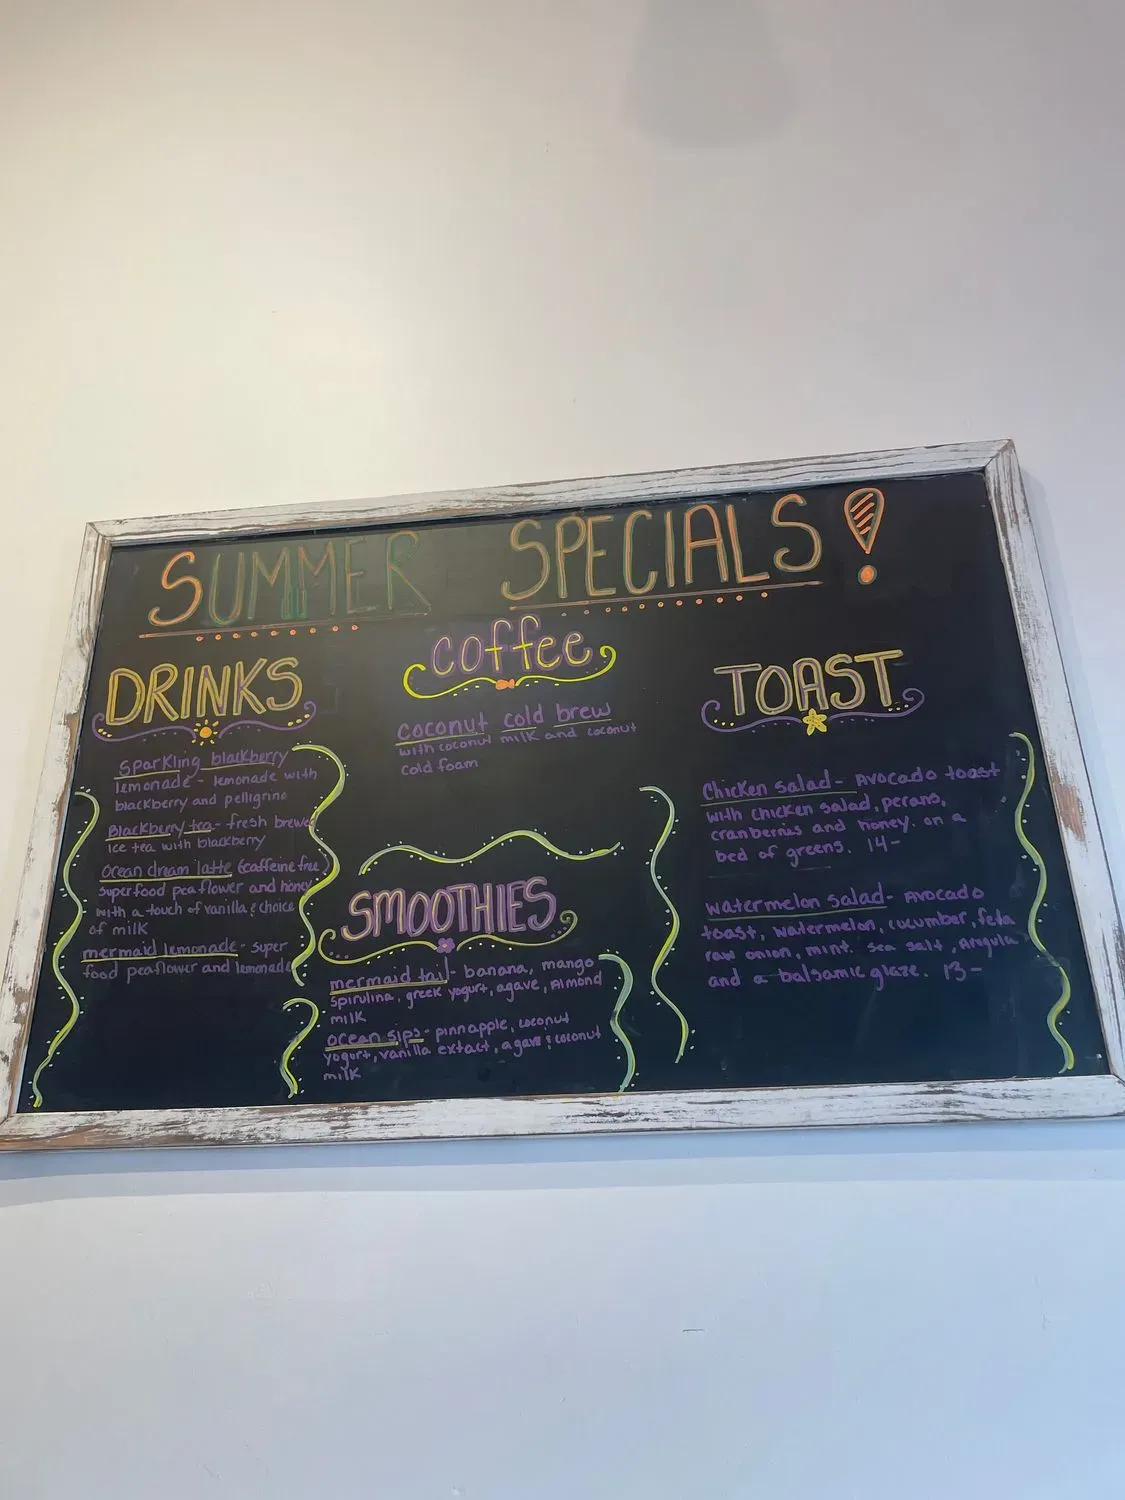 SUMMER SPECIALS!
DRINKS
sparkling blackberry
lemonade - lemonade with
blackberry and pelligrino
Blackberry tea - fresh brewed
ice tea with blackberry
ocean dream latte (caffeine free)
superfood pea flower and honey
with a touch of vanilla & choice
of milk
mermaid lemonade - super
food peaflower and lemonade
coffee
coconut cold brew
with coconut milk and coconut
cold foam
SMOOTHIES
mermaid tail - banana, mango
spirulina, greek yogurt, agave, Almond
milk
ocean sips - pinnapple, coconut
yogurt, vanilla extract, agave & coconut
milk
TOAST
Chicken salad - Avocado toast
with chicken salad, pecans,
cranberries and honey. on a
bed of greens. 14-
watermelon salad - Avocado
toast, watermelon, cucumber, feta
raw onion, mint. sea salt, Arugula
and a balsamic glaze. 13-